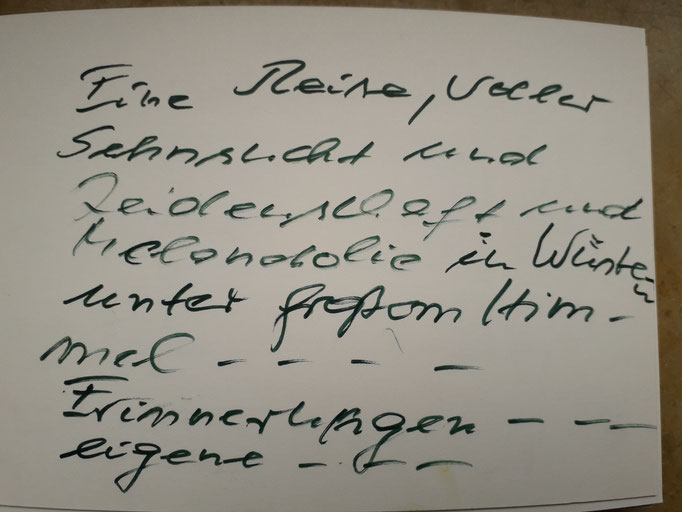 Eine Reise, voller
Sehnsucht und
Leidenschaft und
Melancholie in Wüsten
unter großem Him-
mel - - - -
Erinnerungen - - -
eigene - - -